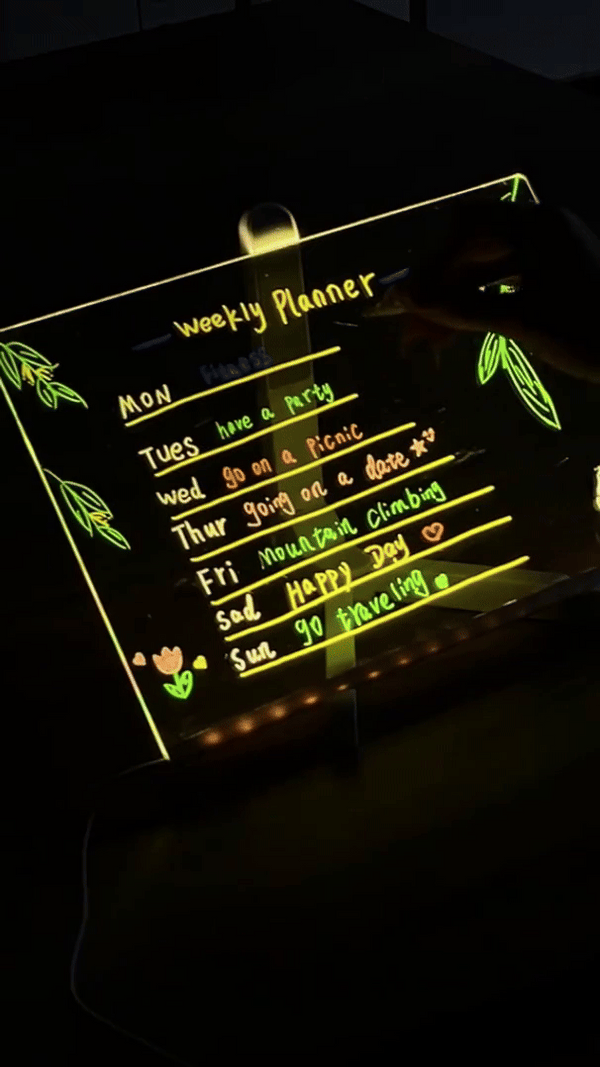 Weekly Planner
MON Fitness
Tues have a party
Wed go on a picnic
Thur going on a date
Fri Mountain Climbing
Sad Happy Day
Sun go traveling